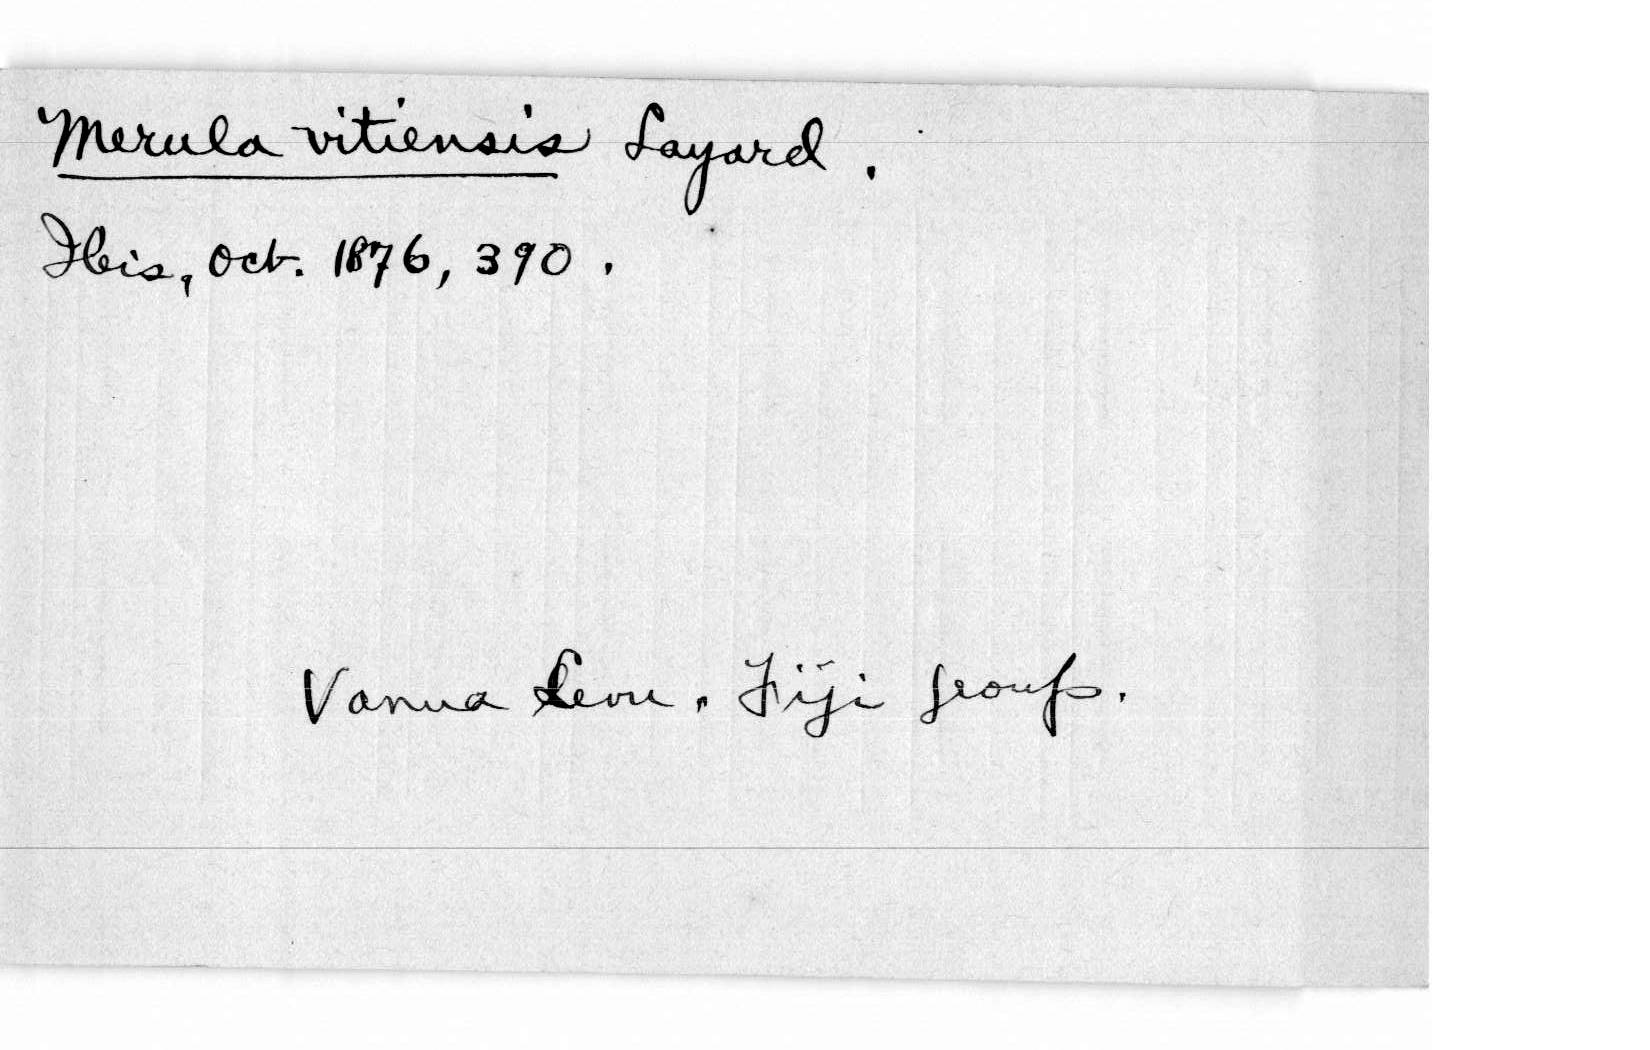 Merula vitiensis Layard.
Ibis, Oct. 1876, 390.
Vanua Levu, Fiji group.